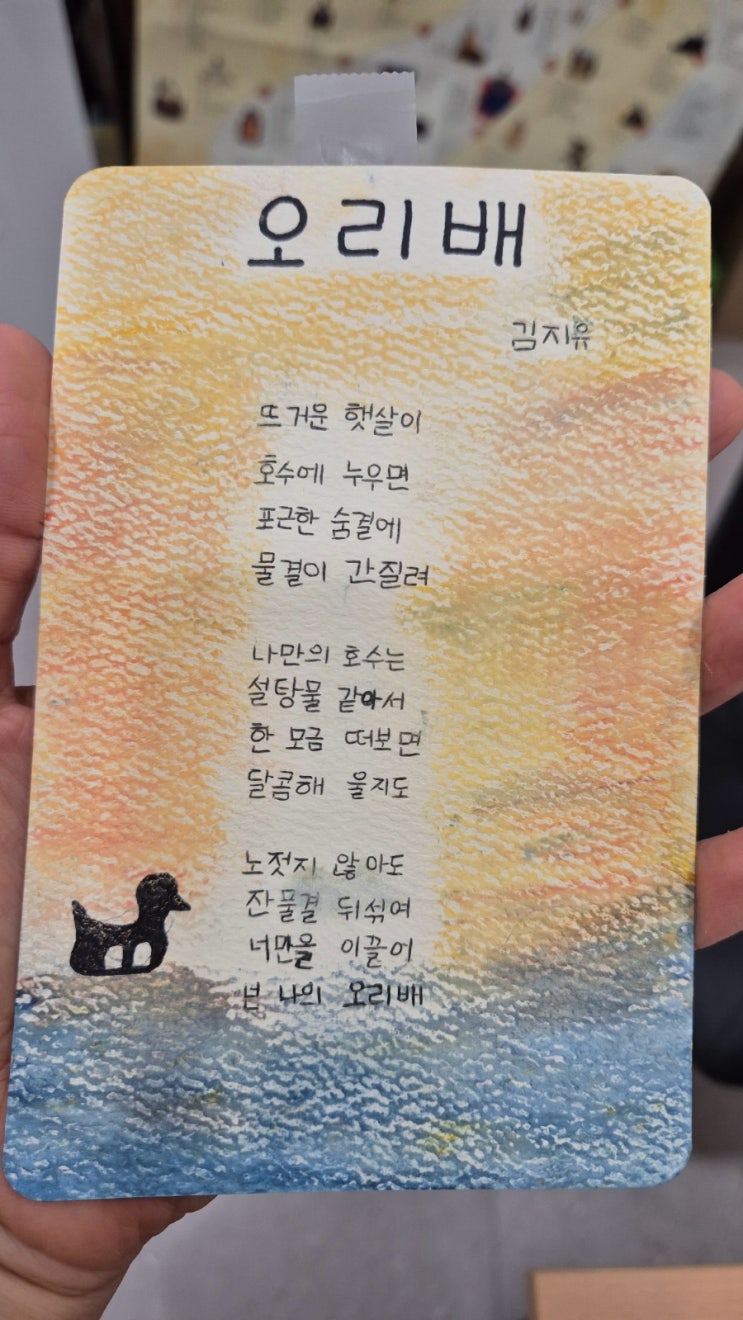 오리배
김지유
뜨거운 햇살이
호수에 누우면
포근한 숨결에
물결이 간질려
나만의 호수는
설탕물 같아서
한 모금 떠보면
달콤해 울지도
노젓지 않아도
잔물결 뒤섞여
너만을 이끌어
넌 나의 오리배